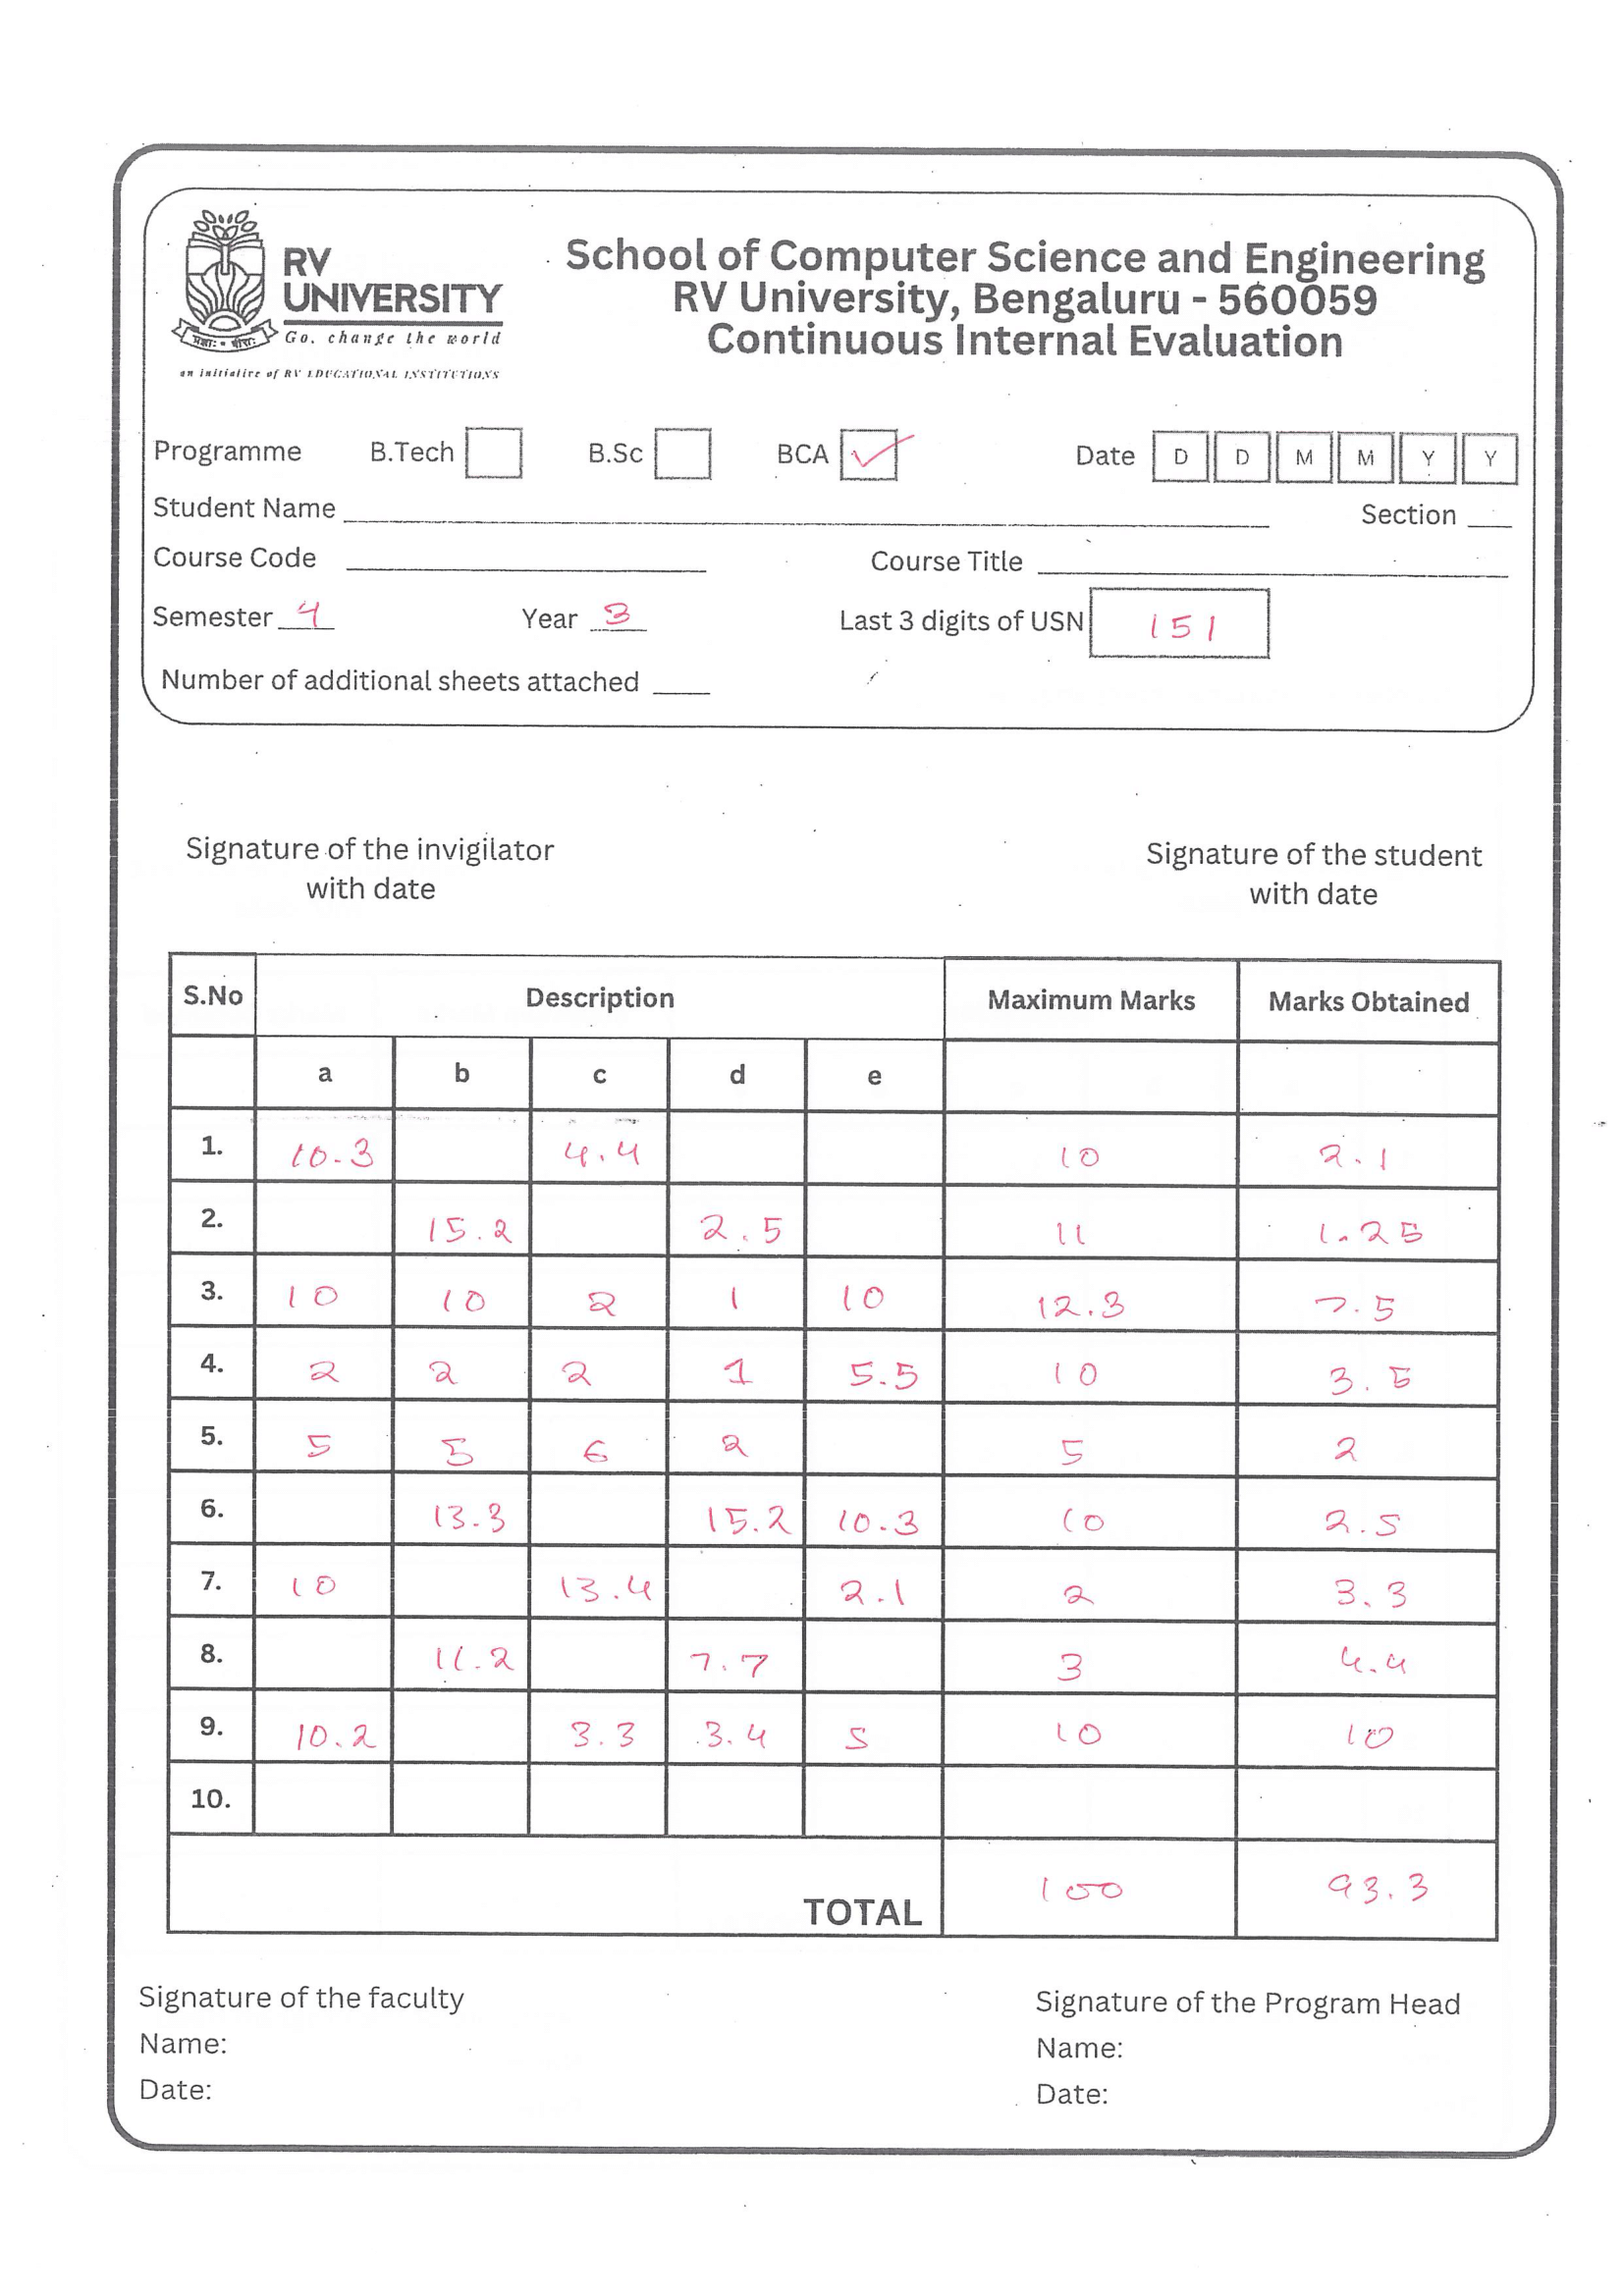 RV
UNIVERSITY
Go, change the world
an initiative of RV EDUCATIONAL INSTITUTIONS
School of Computer Science and Engineering
RV University, Bengaluru - 560059
Continuous Internal Evaluation
Programme B.Tech B.Sc BCA ✓ Date D D M M Y Y
Student Name Section
Course Code Course Title
Semester 4 Year 3 Last 3 digits of USN 151
Number of additional sheets attached
Signature of the invigilator
with date
Signature of the student
with date
S.No Description Maximum Marks Marks Obtained
a b c d e
1. 10.3 4.4 10 2.1
2. 15.2 2.5 11 1.25
3. 10 10 2 1 10 12.3 7.5
4. 2 2 2 1 5.5 10 3.5
5. 5 5 6 2 5 2
6. 13.3 15.2 10.3 10 2.5
7. 10 13.4 2.1 2 3.3
8. 11.2 7.7 3 4.4
9. 10.2 3.3 3.4 5 10 10
10.
TOTAL 100 93.3
Signature of the faculty
Name:
Date:
Signature of the Program Head
Name:
Date: